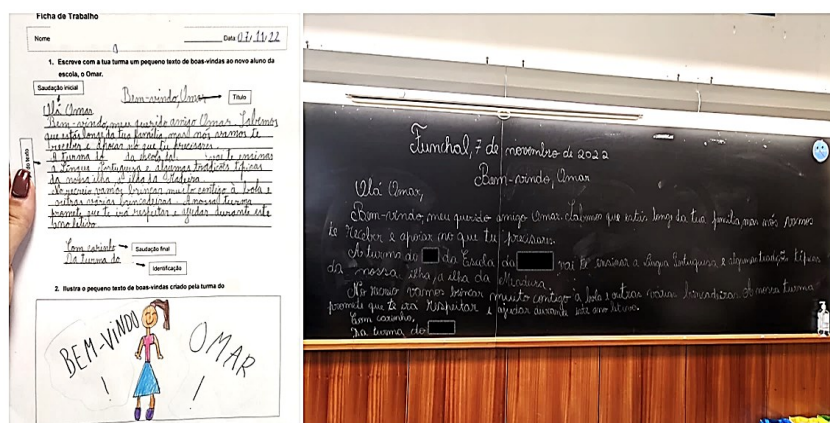 Ficha de Trabalho
Nome
Data 07/11/22
1. Escreve com a tua turma um pequeno texto de boas-vindas ao novo aluno da
escola, o Omar.
Saudação inicial
Bem-vindo, Omar
Título
Olá Omar
Bem-vindo, meu querido amigo Omar. Sabemos
que estás longe da tua família, mas nós vamos te
receber e apoiar no que tu precisares.
A turma da escola vai te ensinar
a Língua Portuguesa e algumas tradições típicas
da nossa ilha, a ilha da Madeira.
No recreio vamos brincar muito contigo à bola e
outras várias brincadeiras. A nossa turma
promete que te irá respeitar e ajudar durante este
ano letivo.
do texto
Com carinho
Saudação final
Da turma do
Identificação
2. Ilustra o pequeno texto de boas-vindas criado pela turma do
BEM-VINDO
OMAR
!
!
Funchal, 7 de novembro de 2022
Bem-vindo, Omar
Olá Omar,
Bem-vindo, meu querido amigo Omar. Sabemos que estás longe da tua família mas nós vamos
te receber e apoiar no que tu precisares.
A turma do da Escola da vai te ensinar a Língua Portuguesa e algumas tradições típicas
da nossa ilha, a ilha da Madeira.
No recreio vamos brincar muito contigo à bola e outras várias brincadeiras. A nossa turma
promete que te irá respeitar e ajudar durante este ano letivo.
Com carinho,
Da turma do